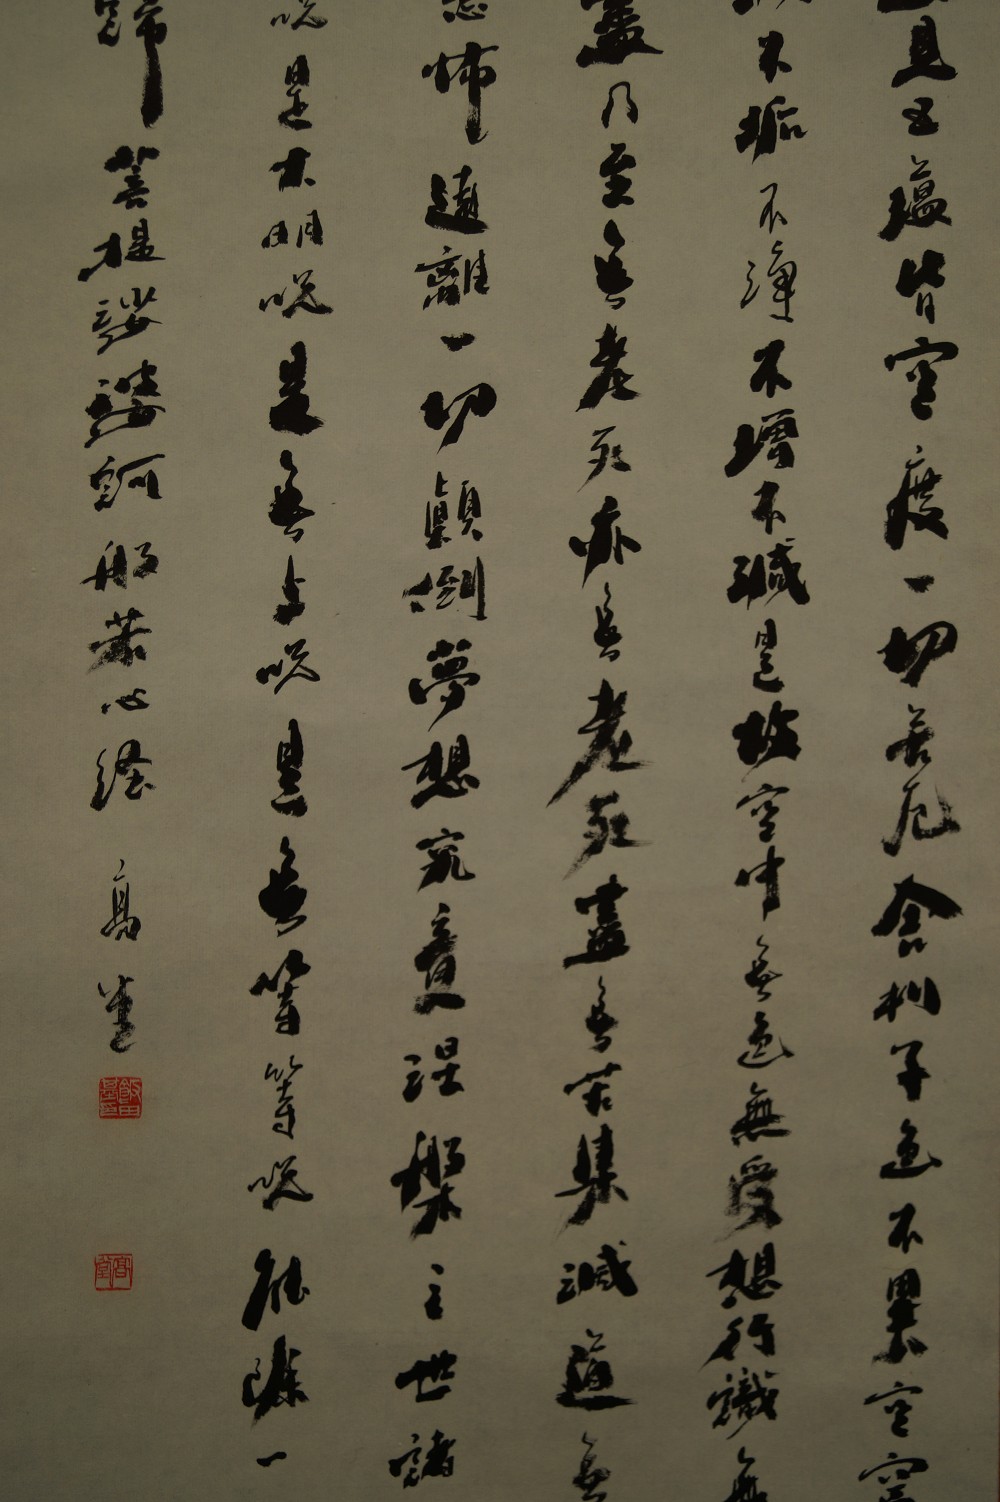 見五蘊皆空度一切苦厄舍利子色不異空空
不垢不淨不增不減是故空中無色無受想行識無
盡乃至無老死亦無老死盡無苦集滅道無
恐怖遠離一切顛倒夢想究竟涅槃三世諸
呪是大明呪是無上呪是無等等呪能除一
諦菩提娑婆訶般若心経 高堂
高堂